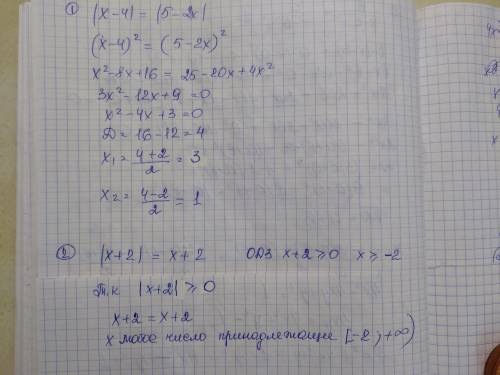 ① |x-4| = |5-2x|
(x-4)² = (5-2x)²
x²-8x+16 = 25-20x+4x²
3x²-12x+9=0
x²-4x+3=0
D=16-12=4
x₁= (4+2)/2 = 3
x₂= (4-2)/2 = 1
② |x+2| = x+2 ОДЗ x+2⩾0 x⩾-2
Т.к |x+2| ⩾ 0
x+2 = x+2
x любое число принадлежащие [-2;+∞)